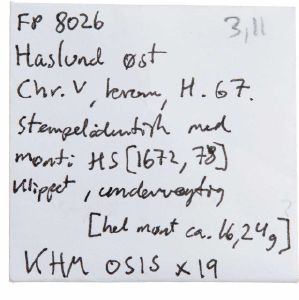 FP 8026
3,11
Haslund øst
Chr. V, krone, H. 67.
Stempelidentisk med
mont: HS [1672, 78]
Klippet, undervægtig
[hel mønt ca. 16,24g]
KHM OSIS x19